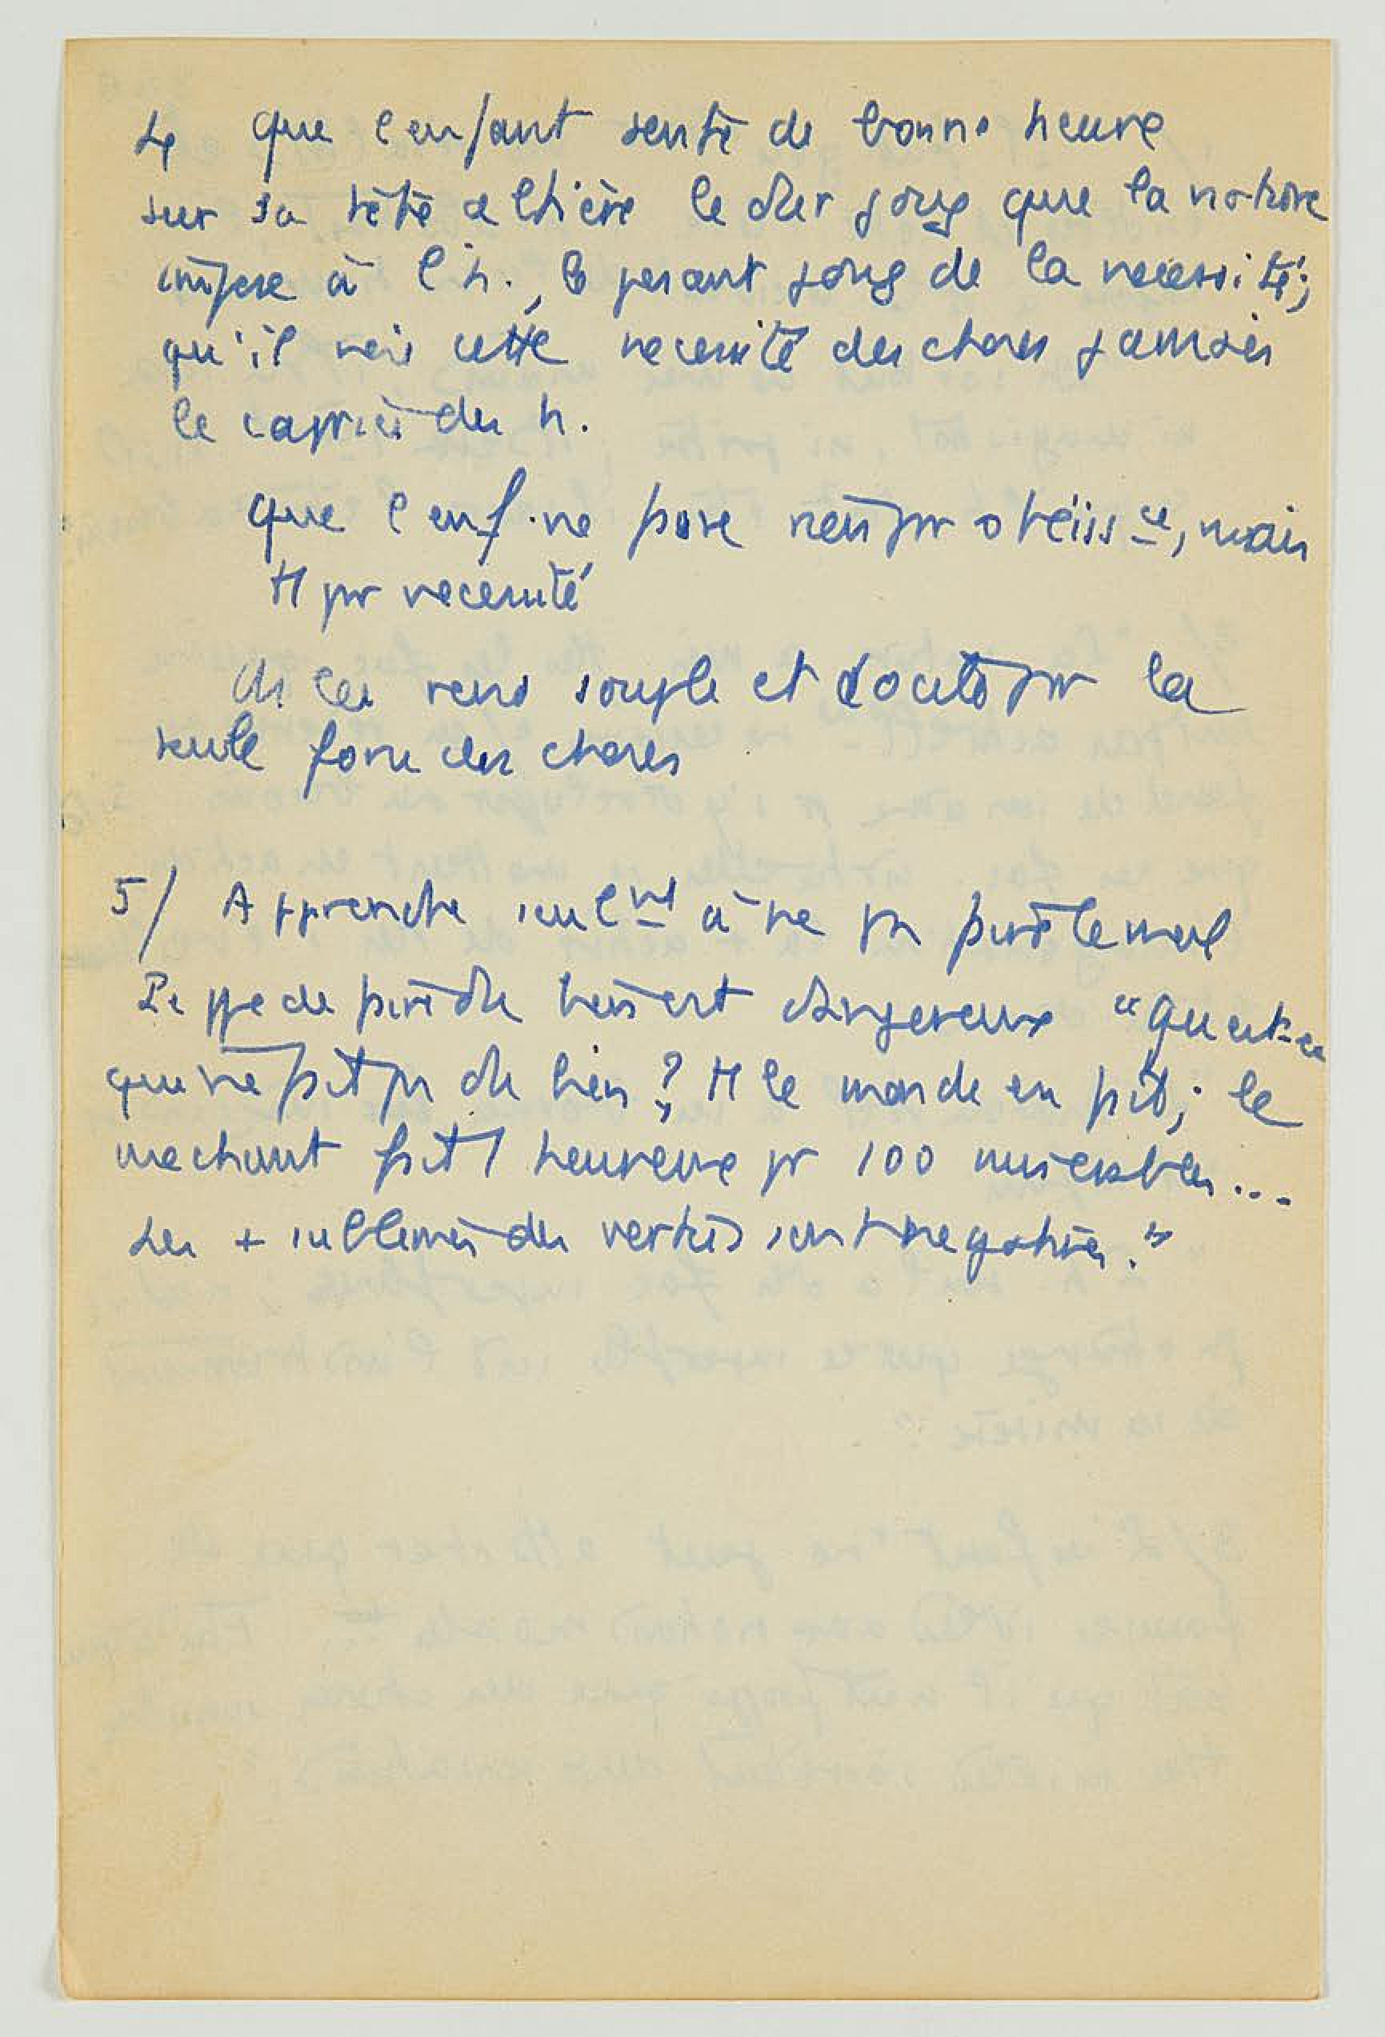 4 que l'enfant sente de bonne heure
sur sa tête altière le dur joug que la nature
impose à l'h., le pesant joug de la nécessité;
qu'il voie cette nécessité des choses jamais
le caprice des h.
que l'enf. ne fasse rien pr obéiss ce, mais
tt pr nécessité
on le rend souple et docile pr la
seule force des choses
5/ Apprendre seul nt à ne pas faire le mal
Le ppe de faire du bien est dangereux "Qu'est-ce
qui ne fait pas de bien? tt le monde en fait; le
méchant fait 1 heureux pr 100 misérables...
Les + sublimes des vertus sont négatives."